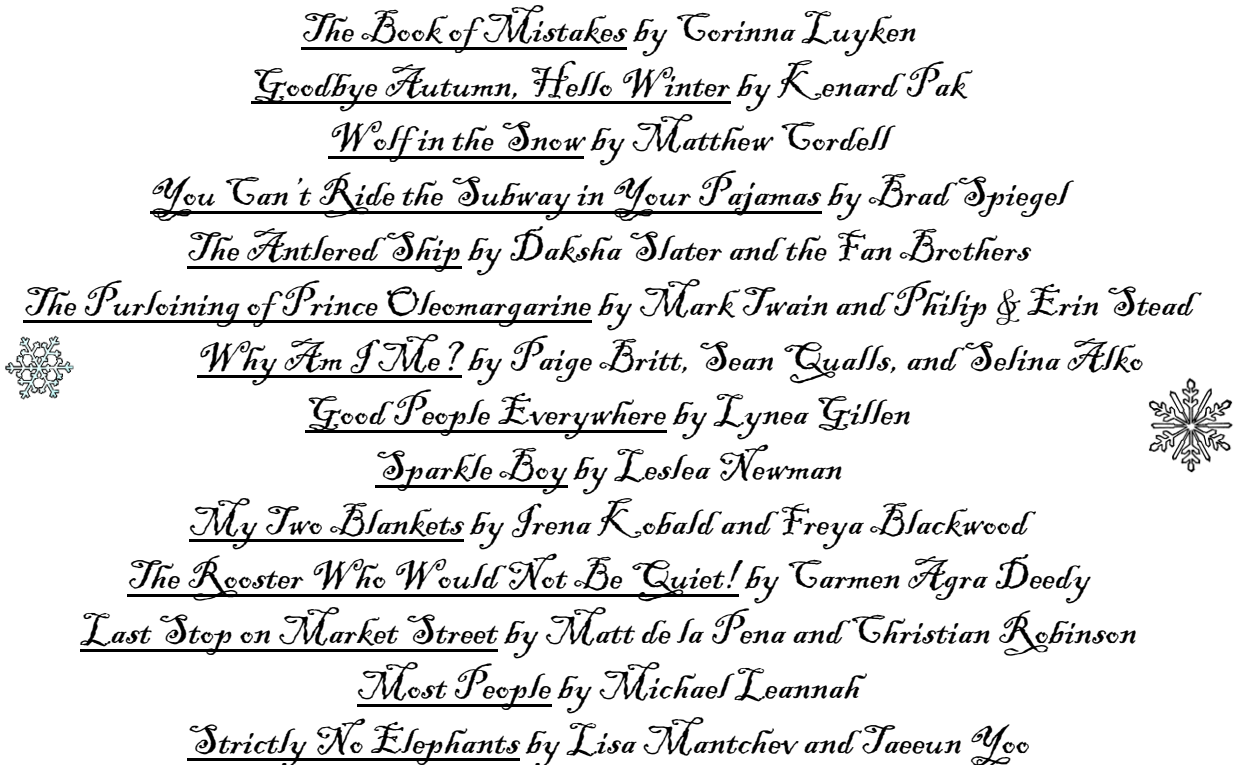 The Book of Mistakes by Corinna Luyken
Goodbye Autumn, Hello Winter by Kenard Pak
Wolf in the Snow by Matthew Cordell
You Can't Ride the Subway in Your Pajamas by Brad Spiegel
The Antlered Ship by Daksha Slater and the Fan Brothers
The Purloining of Prince Oleomargarine by Mark Twain and Philip & Erin Stead
Why Am I Me? by Paige Britt, Sean Qualls, and Selina Alko
Good People Everywhere by Lynea Gillen
Sparkle Boy by Leslea Newman
My Two Blankets by Irena Kobald and Freya Blackwood
The Rooster Who Would Not Be Quiet! by Carmen Agra Deedy
Last Stop on Market Street by Matt de la Pena and Christian Robinson
Most People by Michael Leannah
Strictly No Elephants by Lisa Mantchev and Taeeun Yoo